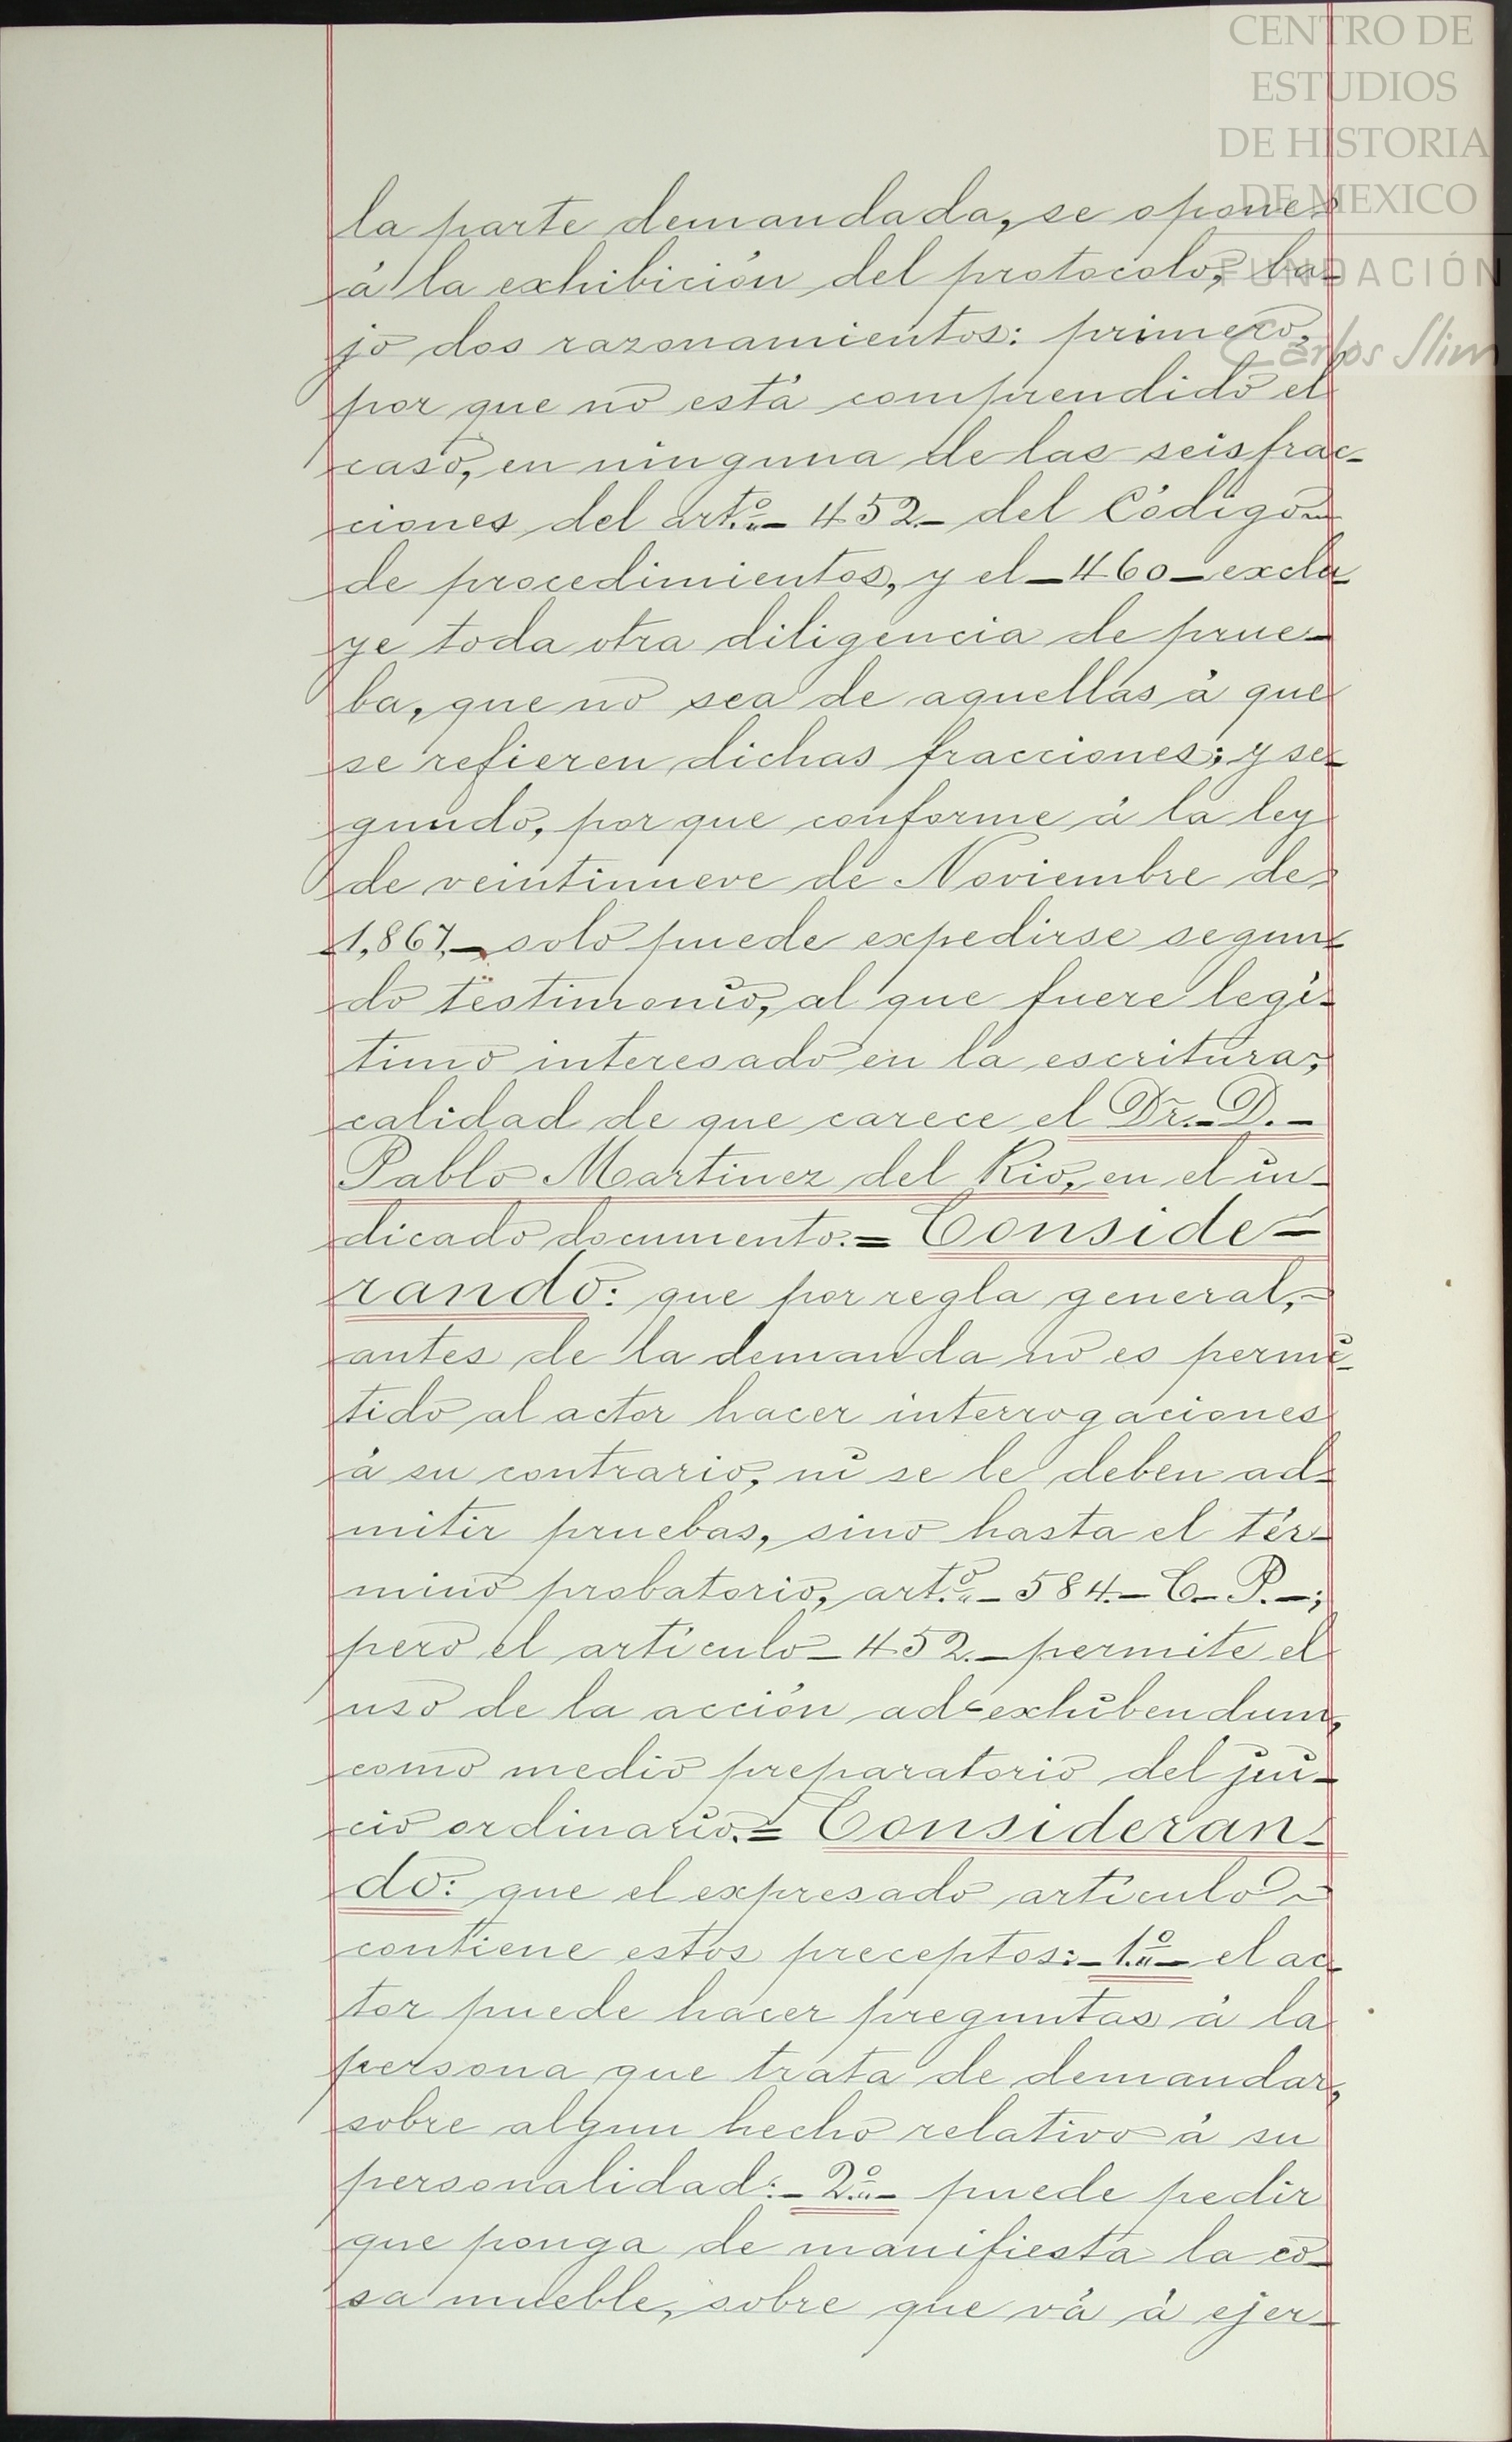 CENTRO DE
ESTUDIOS
DE HISTORIA
DE MEXICO
FUNDACIÓN
Carlos Slim
la parte demandada, se opone
á la exhibición del protocolo, ba-
jo dos razonamientos: primero,
por que no está comprendido el
caso, en ninguna de las seis frac-
ciones del art.º 452 - del Código
de procedimientos, y el - 460 - exclu
ye toda otra diligencia de prue-
ba, que no sea de aquellas á que
se refieren dichas fracciones; y se-
gundo, por que conforme á la ley
de veintinueve de Noviembre de
1,867, - solo puede expedirse segun-
do testimonio, al que fuere legí-
timo interesado en la escritura,
calidad de que carece el Dr. D. -
Pablo Martinez del Rio, en el in-
dicado documento. = Conside-
rando: que por regla general, -
antes de la demanda no es permi-
tido al actor hacer interrogaciones
á su contrario, ni se le deben ad-
mitir pruebas, sino hasta el tér-
mino probatorio, art.º - 584. - C. P. -;
pero el artículo - 452. - permite el
uso de la acción ad-exhibendum,
como medio preparatorio del jui-
cio ordinario. = Consideran-
do: que el expresado artículo -
contiene estos preceptos: - 1.º - el ac-
tor puede hacer preguntas á la
persona que trata de demandar,
sobre algun hecho relativo á su
personalidad: - 2.º - puede pedir
que ponga de manifiesta la co-
sa mueble, sobre que vá á ejer-